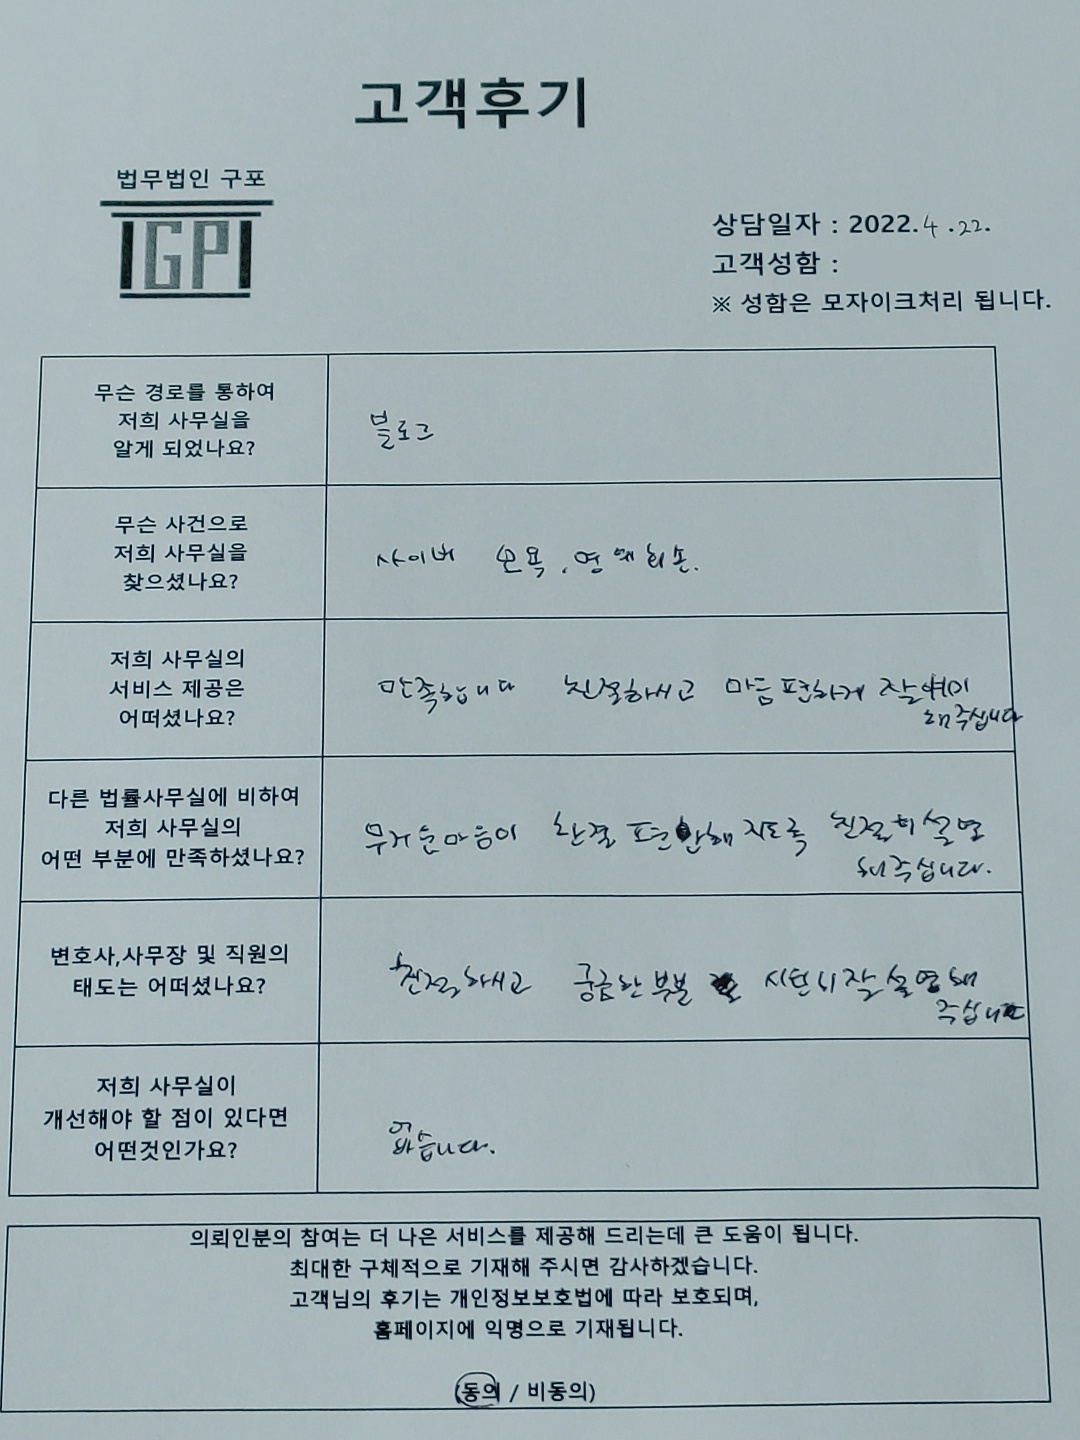 고객후기
법무법인 구포
IGPI
상담일자 : 2022.4.22.
고객성함 :
※ 성함은 모자이크처리 됩니다.
무슨 경로를 통하여
저희 사무실을
알게 되었나요?
블로그
무슨 사건으로
저희 사무실을
찾으셨나요?
사이버 모욕, 명예회손.
저희 사무실의
서비스 제공은
어떠셨나요?
만족합니다 친절하시고 마음편하게 잘
해주십니다
다른 법률사무실에 비하여
저희 사무실의
어떤 부분에 만족하셨나요?
무거운마음이 한결 편안해지도록 친절히설명
해주십니다.
변호사,사무장 및 직원의
태도는 어떠셨나요?
친절하시고 궁금한부분 잘설명해
주십니다
저희 사무실이
개선해야 할 점이 있다면
어떤것인가요?
없습니다.
의뢰인분의 참여는 더 나은 서비스를 제공해 드리는데 큰 도움이 됩니다.
최대한 구체적으로 기재해 주시면 감사하겠습니다.
고객님의 후기는 개인정보보호법에 따라 보호되며,
홈페이지에 익명으로 기재됩니다.
(동의 / 비동의)